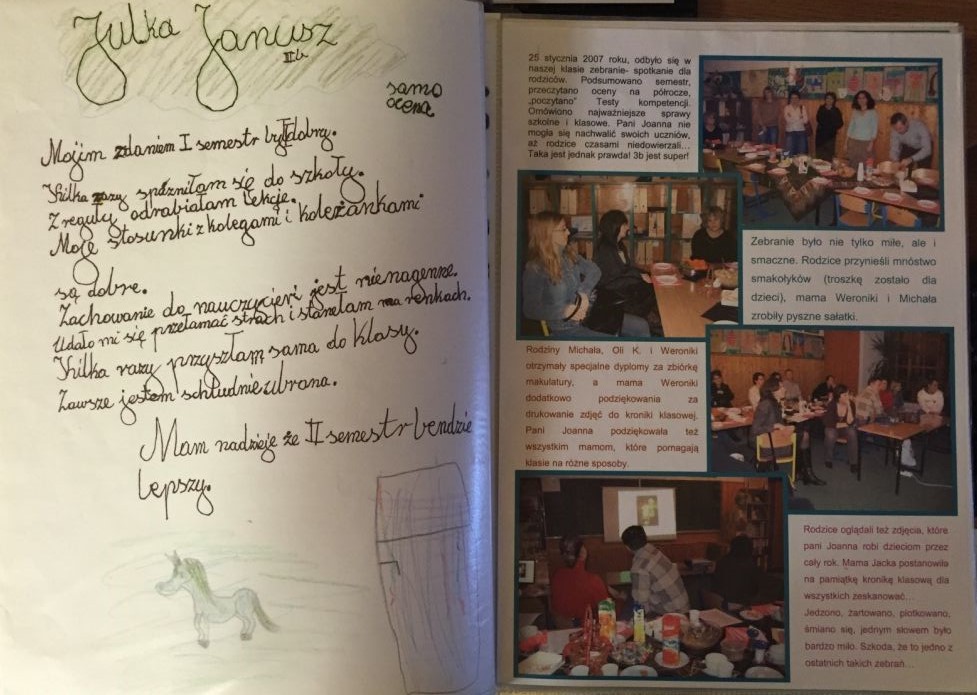 Julka Janusz
II b
samo
ocena
Mojim zdaniem I semestr był dobry.
Kilka razy spóźniłam się do szkoły.
Z reguły odrabiałam lekcje.
Moje stosunki z kolegami i koleżankami
są dobre.
Zachowanie do nauczycieli jest nienagenne.
Udało mi się przełamać strach i stanełam na renkach.
Kilka razy przyszłam sama do klasy.
Zawsze jestem schludnie ubrana.
Mam nadzieje że II semestr bendzie
lepszy.
25 stycznia 2007 roku, odbyło się w
naszej klasie zebranie- spotkanie dla
rodziców. Podsumowano semestr,
przeczytano oceny na półrocze,
„poczytano" Testy kompetencji.
Omówiono najważniejsze sprawy
szkolne i klasowe. Pani Joanna nie
mogła się nachwalić swoich uczniów,
aż rodzice czasami niedowierzali...
Taka jest jednak prawda! 3b jest super!
Zebranie było nie tylko miłe, ale i
smaczne. Rodzice przynieśli mnóstwo
smakołyków (troszkę zostało dla
dzieci), mama Weroniki i Michała
zrobiły pyszne sałatki.
Rodziny Michała, Oli K. i Weroniki
otrzymały specjalne dyplomy za zbiórkę
makulatury, a mama Weroniki
dodatkowo podziękowania za
drukowanie zdjęć do kroniki klasowej.
Pani Joanna podziękowała też
wszystkim mamom, które pomagają
klasie na różne sposoby.
Rodzice oglądali też zdjęcia, które
pani Joanna robi dzieciom przez
cały rok. Mama Jacka postanowiła
na pamiątkę kronikę klasową dla
wszystkich zeskanować...
Jedzono, żartowano, plotkowano,
śmiano się, jednym słowem było
bardzo miło. Szkoda, że to jedno z
ostatnich takich zebrań...